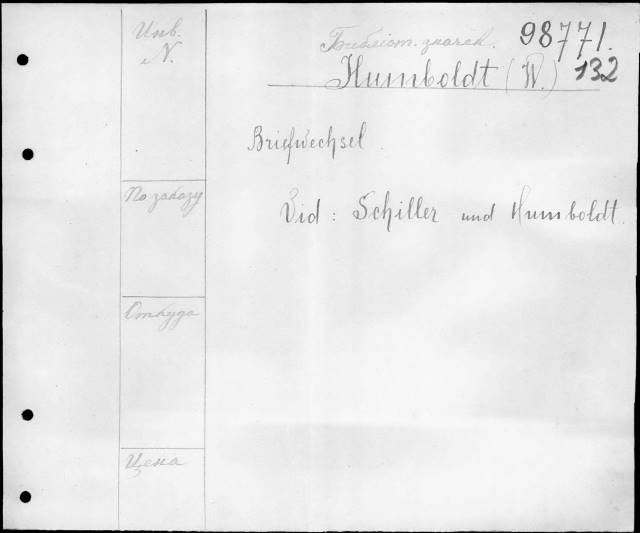 Инв.
N.
Библіот. значек. 98771.
Humboldt (W.) 132
Briefwechsel.
Vid: Schiller und Humboldt.
По заказу
Откуда
Цена